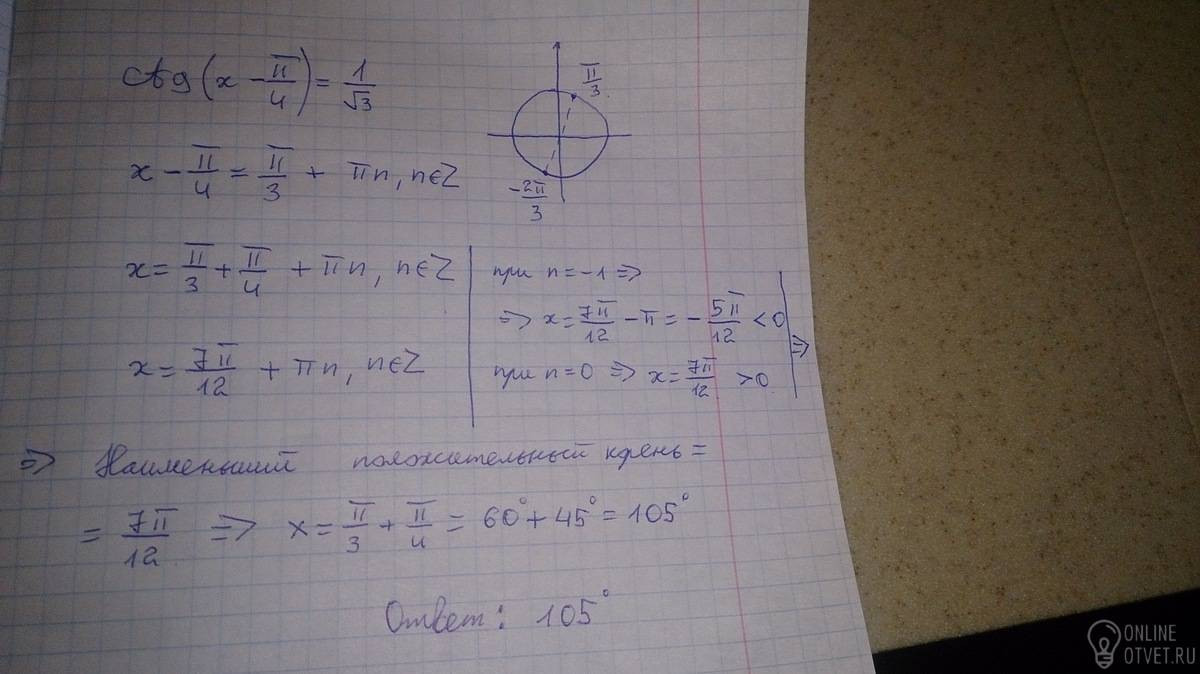 ctg(x - π/4) = 1/√3
π/3
x - π/4 = π/3 + πn, n∈Z
-2π/3
x = π/3 + π/4 + πn, n∈Z
x = 7π/12 + πn, n∈Z
при n = -1 ⇒
⇒ x = 7π/12 - π = - 5π/12 < 0
при n = 0 ⇒ x = 7π/12 > 0
⇒
⇒ Наименьший положительный корень =
= 7π/12 ⇒ x = π/3 + π/4 = 60° + 45° = 105°
Ответ: 105°
ONLINE
OTVET.RU